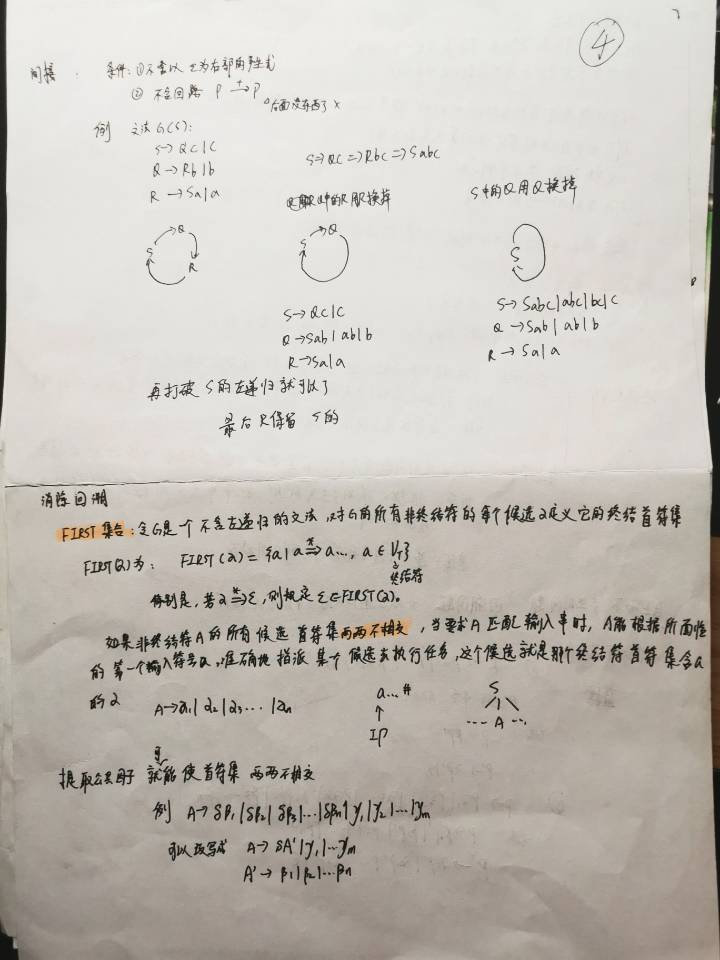 ④
间接： 条件：① 不含以 ε 为右部的产生式
② 不含回路 P ⇒⁺ P
后面没东西了 ×
例 文法 G(S)：
S → Qc|c
Q → Rb|b
R → Sa|a
S ⇒ Qc ⇒ Rbc ⇒ Sabc
中的R用R换掉
S中的Q用Q换掉
S Q R
S Q
S
S → Qc|c
Q → Sab|ab|b
R → Sa|a
S → Sabc|abc|bc|c
Q → Sab|ab|b
R → Sa|a
再打破 S的左递归就可以了
最后只保留 S的
消除回溯
FIRST集合：令G是一个不含左递归的文法，对G的所有非终结符的每个候选α定义它的终结首符集
FIRST(α)为： FIRST(α) = {a | α ⇒* a…, a ∈ V_T}
终结符
特别是，若 α ⇒* ε，则规定 ε ∈ FIRST(α)。
如果非终结符A的所有候选首符集两两不相交，当要求A匹配输入串时，A能根据所面临
的第一个输入符号a，准确地指派某个候选去执行任务，这个候选就是那个终结首符集含a
的α A → α₁|α₂|α₃…|αₙ
a…#
↑
IP
S
…A…
提取公共因子 就能使首符集两两不相交
例 A → δβ₁|δβ₂|δβ₃|…|δβₙ|γ₁|γ₂|…|γₘ
可以改写成 A → δA'|γ₁|…γₘ
A' → β₁|β₂|…βₙ